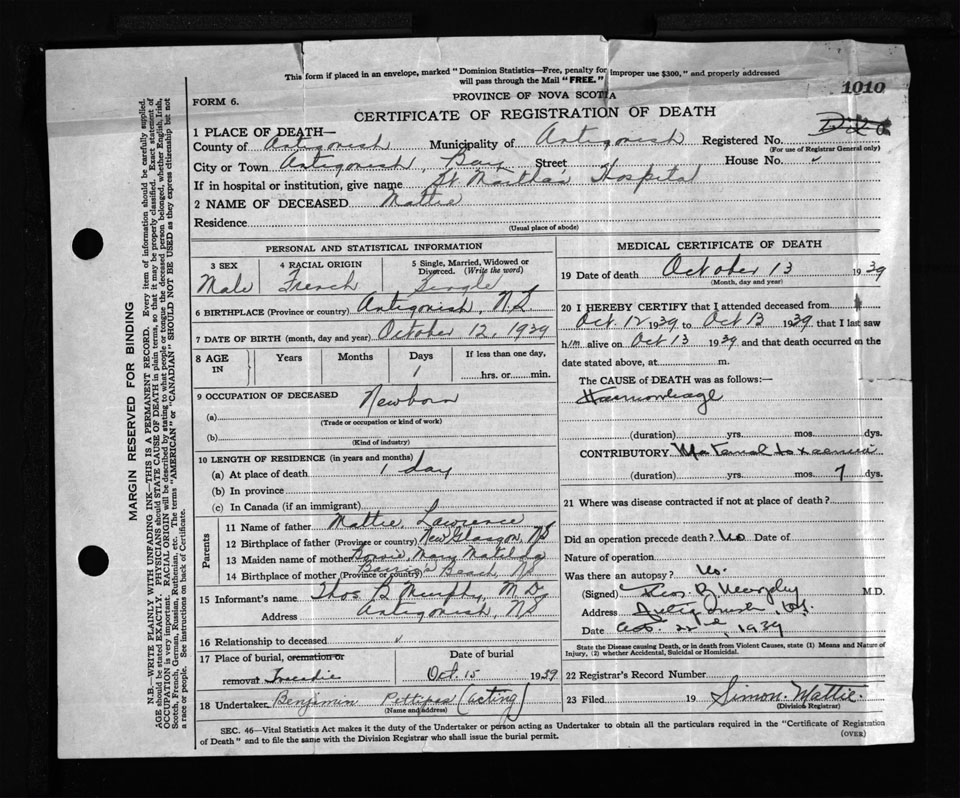 This form if placed in an envelope, marked "Dominion Statistics—Free, penalty for improper use $300," and properly addressed
will pass through the Mail "FREE."
1010
FORM 6.
PROVINCE OF NOVA SCOTIA
CERTIFICATE OF REGISTRATION OF DEATH
1 PLACE OF DEATH—
County of Antigonish Municipality of Antigonish Registered No.
(For use of Registrar General only)
City or Town Antigonish, Street House No.
If in hospital or institution, give name St Martha's Hospital
2 NAME OF DECEASED Mattie
Residence
(Usual place of abode)
PERSONAL AND STATISTICAL INFORMATION
3 SEX 4 RACIAL ORIGIN 5 Single, Married, Widowed or Divorced. (Write the word)
Male French Single
6 BIRTHPLACE (Province or country) Antigonish, N.S
7 DATE OF BIRTH (month, day and year) October 12, 1939
8 AGE IN Years Months Days If less than one day,
1 hrs. or min.
9 OCCUPATION OF DECEASED Newborn
(a)
(Trade or occupation or kind of work)
(b)
(Kind of industry)
10 LENGTH OF RESIDENCE (in years and months)
(a) At place of death 1 day
(b) In province
(c) In Canada (if an immigrant)
Parents
11 Name of father Mattie, Lawrence
12 Birthplace of father (Province or country) New Glasgow, NS
13 Maiden name of mother Mary Matilda
14 Birthplace of mother (Province or country) Beach, NS
15 Informant's name Thos B Murphy, M.D,
Address Antigonish, NS
16 Relationship to deceased
17 Place of burial, cremation or Date of burial
removal Tracadie Oct. 15 1939
18 Undertaker Benjamin Pettipas (acting)
(Name and address)
MEDICAL CERTIFICATE OF DEATH
19 Date of death October 13 1939
(Month, day and year)
20 I HEREBY CERTIFY that I attended deceased from
Oct. 12 1939 to Oct 13 1939 that I last saw
him alive on Oct 13 1939 and that death occurred on the
date stated above, at m.
The CAUSE of DEATH was as follows:—
Haemorrhage
(duration) yrs. mos. dys.
CONTRIBUTORY Maternal toxaemia
(duration) yrs. mos. 7 dys.
21 Where was disease contracted if not at place of death?
Did an operation precede death? No Date of
Nature of operation
Was there an autopsy? No.
(Signed) Thos. B Murphy M.D.
Address Antigonish N.S.
Date Oct. 22nd, 1939
State the Disease causing Death, or in death from Violent Causes, state (1) Means and Nature of
Injury, (2) whether Accidental, Suicidal or Homicidal.
22 Registrar's Record Number
23 Filed 19 Simon Mattie
(Division Registrar)
SEC. 46—Vital Statistics Act makes it the duty of the Undertaker or person acting as Undertaker to obtain all the particulars required in the "Certificate of Registration
of Death" and to file the same with the Division Registrar who shall issue the burial permit.
(OVER)
MARGIN RESERVED FOR BINDING
N.B.—WRITE PLAINLY WITH UNFADING INK—THIS IS A PERMANENT RECORD. Every item of information should be carefully supplied.
AGE should be stated EXACTLY. PHYSICIANS should STATE CAUSE OF DEATH in plain terms, so that it may be properly classified. Exact statement of
OCCUPATION is very important. RACIAL ORIGIN will be described by stating to what people or tongue the deceased person belonged, whether English, Irish,
Scotch, French, German, Russian, Ruthenian, etc. The terms "AMERICAN" or "CANADIAN" SHOULD NOT BE USED as they express citizenship but not
a race or people. See instructions on back of Certificate.